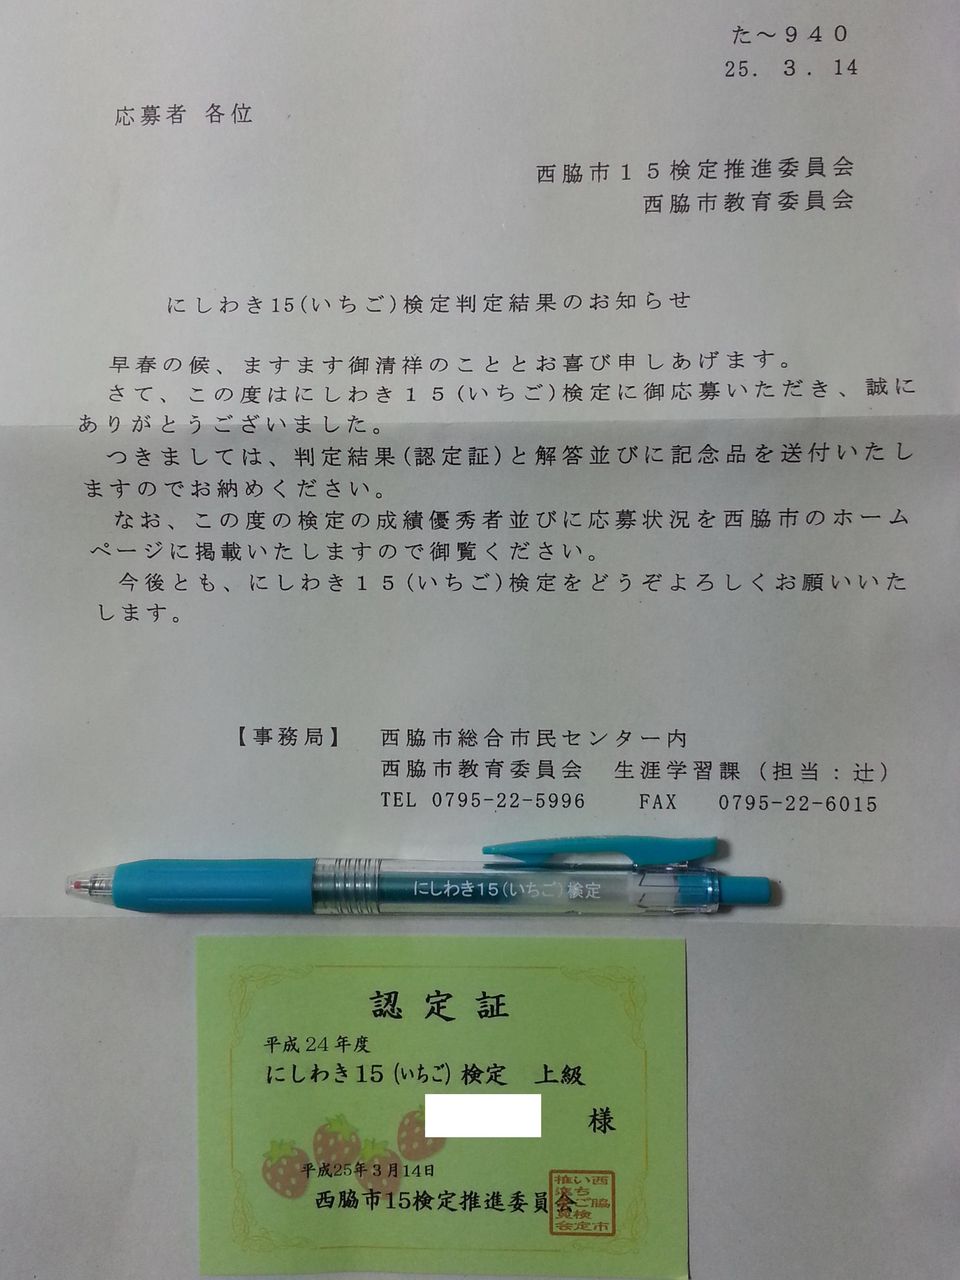 た～９４０
25. 3. 14
応募者 各位
西脇市１５検定推進委員会
西脇市教育委員会
にしわき15(いちご)検定判定結果のお知らせ
早春の候、ますます御清祥のこととお喜び申しあげます。
さて、この度はにしわき１５(いちご)検定に御応募いただき、誠に
ありがとうございました。
つきましては、判定結果(認定証)と解答並びに記念品を送付いたし
ますのでお納めください。
なお、この度の検定の成績優秀者並びに応募状況を西脇市のホーム
ページに掲載いたしますので御覧ください。
今後とも、にしわき１５(いちご)検定をどうぞよろしくお願いいた
します。
【事務局】 西脇市総合市民センター内
西脇市教育委員会 生涯学習課（担当：辻）
TEL 0795-22-5996 FAX 0795-22-6015
にしわき15(いちご)検定
認定証
平成24年度
にしわき15(いちご)検定 上級
様
平成25年3月14日
西脇市15検定推進委員会
西脇市
いちご検定
推進委員会